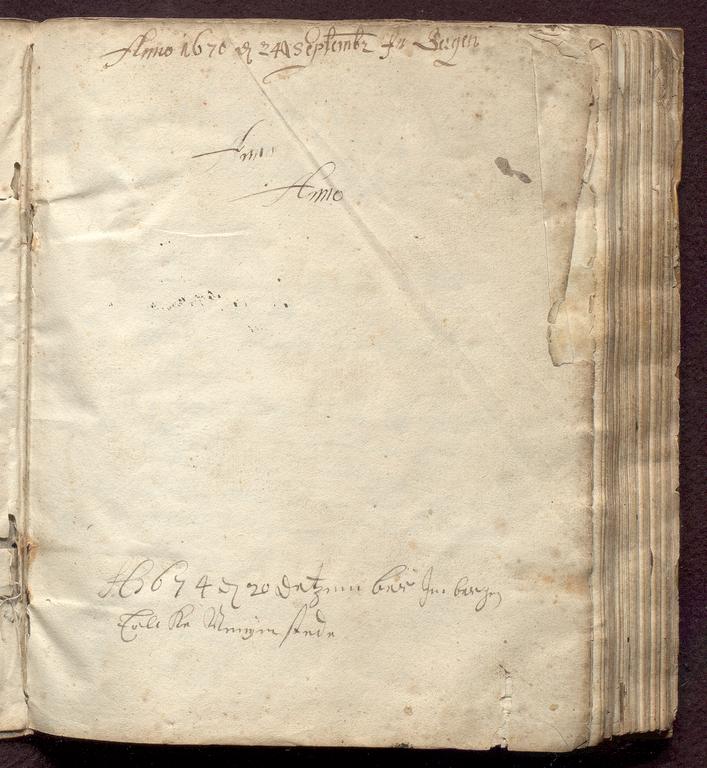 Anno 1670 d 24 Septembr In Bergen
Anno
Anno
A 1674 d 20 detzember In bergen